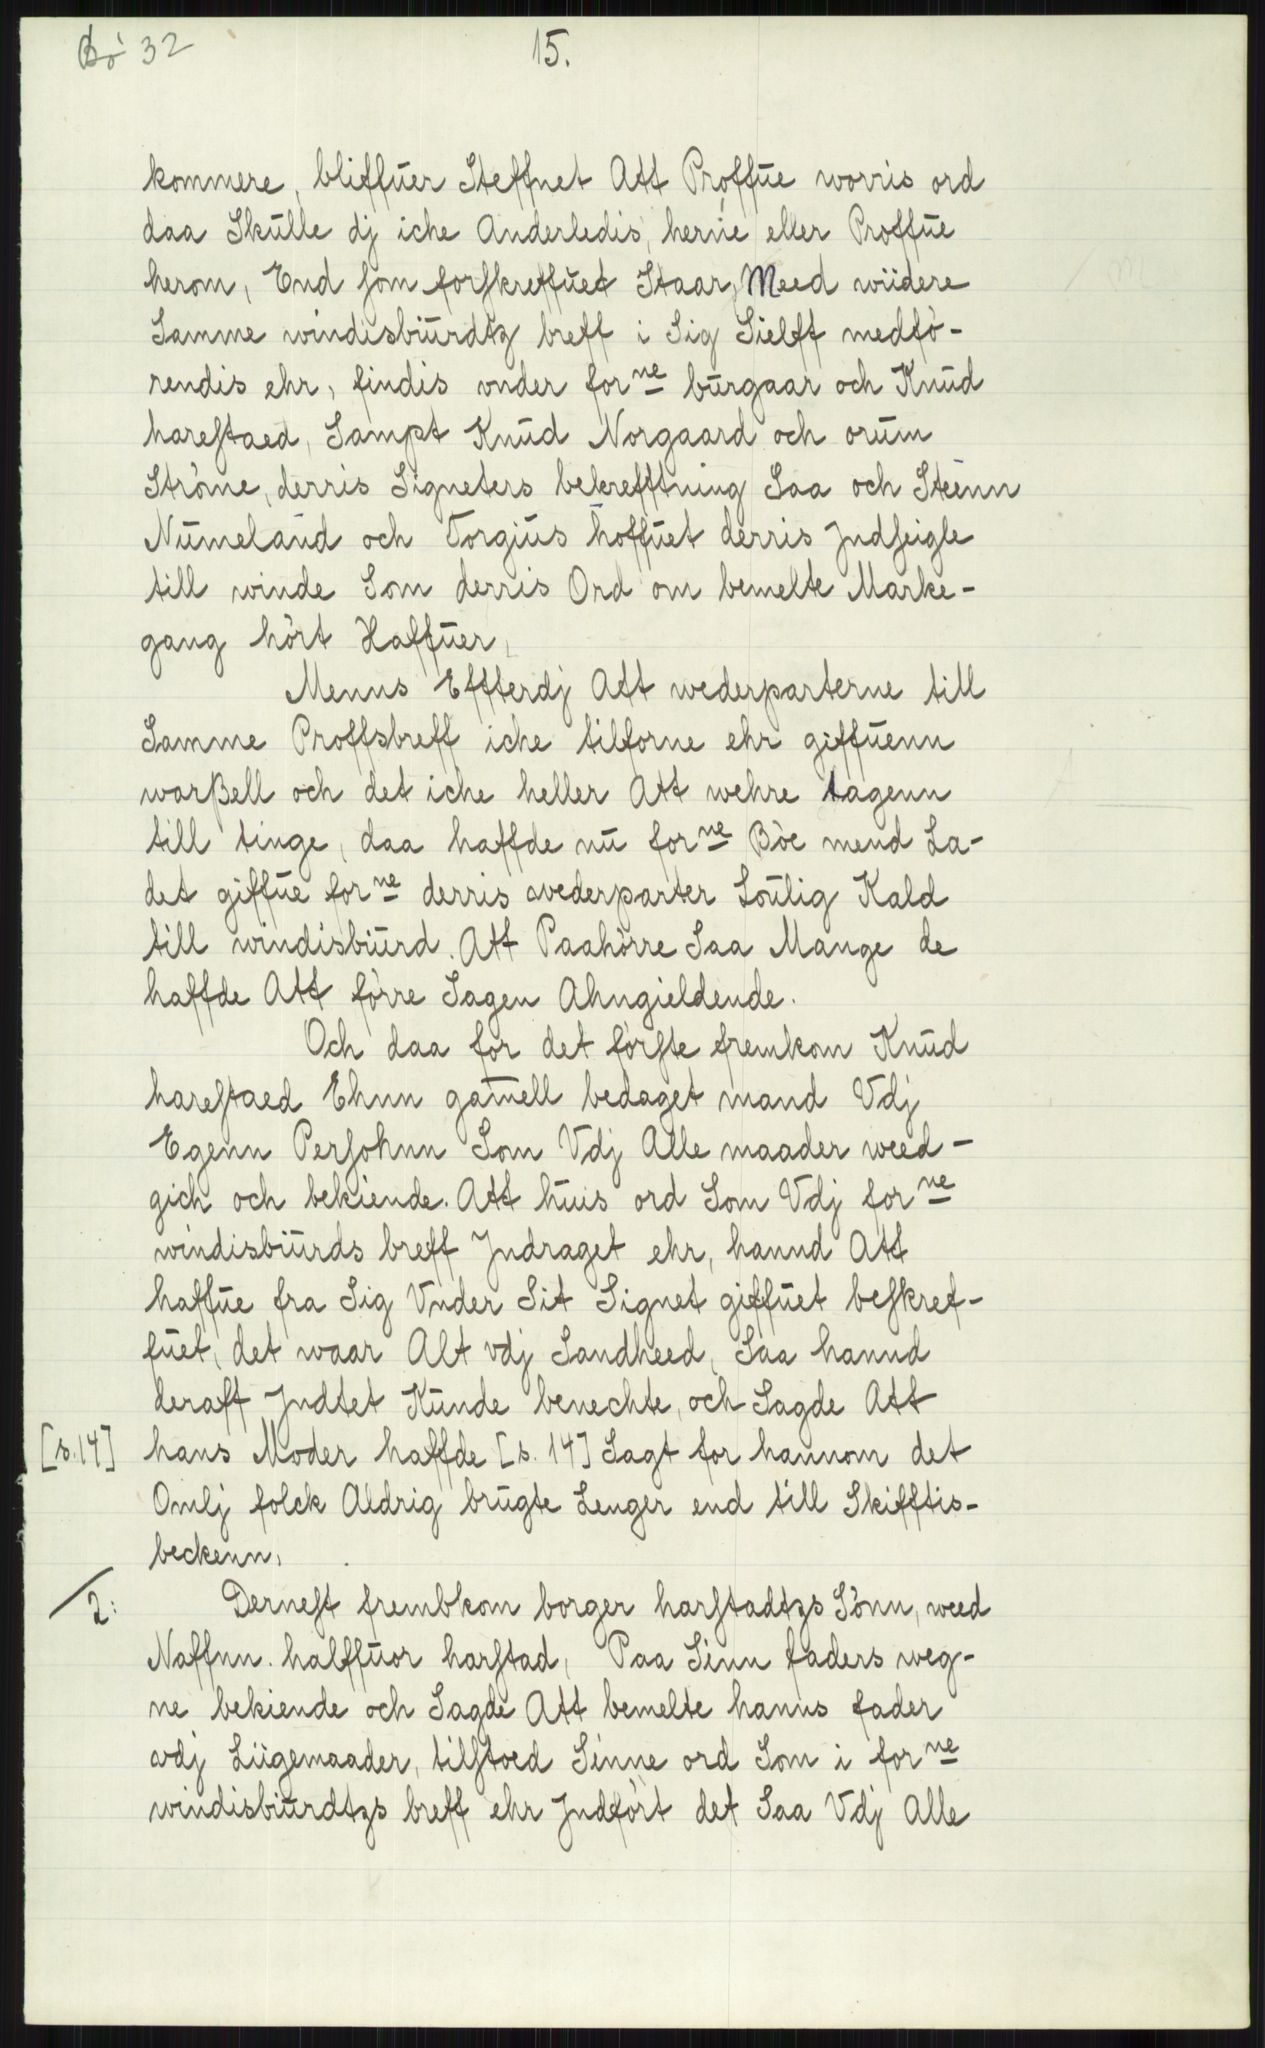 Bö 32
15.
kommere, bliffuer Steffnet Att Pröffue worris ord
daa Skulle dj iche Anderledis, herúe eller Proffue
herom, End som forskreffuet Staar, Meed wiidere
Samme windisbiurdtz breff i Sig Sielff medfö-
rendis ehr, findis vnder forne burgaar och Knud
harestaed, Sampt Knud Norgaard och orum
Ströme, derris Signeters bekrefftning Saa och Steenn
Numeland och Torgius hoffuet derris Jndseigle
till winde Som derris Ord om bemelte Marke-
gang hört Haffuer,
Menns Effterdj Att wederparterne till
Samme Proffsbreff iche tilforne ehr giffuenn
warßell och det iche heller Att wehre tagenn
till tinge, daa haffde nu forne Böe mend La-
det giffue forne derris wederparter Loulig Kald
till windisbiurd. Att Paahörre Saa Mange de
haffde Att förre Sagen Ahngieldende.
Och daa for det förste fremkom Knud
harestaed Ehnn gamell bedaget mand Vdj
Egenn Persohnn Som Vdj Alle maader weed-
gich och bekiende. Att huis ord Som Vdj forne
windisbiurds breff Jndraget ehr, hannd Att
haffue fra Sig Vnder Sit Signet giffuet beskref-
fuet, det waar Alt vdj Sandheed, Saa hannd
deraff Jndtet Kunde benechte, och Sagde Att
[s. 14] hans Moder haffde [s. 14] Sagt for hannom det
Omlj folck Aldrig brugte Lenger end till Skifftis-
beckenn,
2: Dernest frembkom borger harstadtzs Sönn, weed
Naffnn. halffuor harstad, Paa Sinn faders weg-
ne bekiende och Sagde Att bemelte hanns fader
vdj Liigemaader, tilstoed Sinne ord Som i forne
windisbiurdtzs breff ehr Jndfört det Saa Vdj Alle